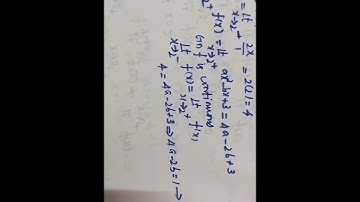 = Lt x→2⁻ 2x/1 = 2(2) = 4
Lt x→2⁺ f(x) = Lt x→2⁺ ax²-bx+3 = 4a-2b+3
Gn f is continuous
Lt x→2⁻ f(x) = Lt x→2⁺ f(x)
4 = 4a-2b+3 ⇒ 4a-2b=1 →